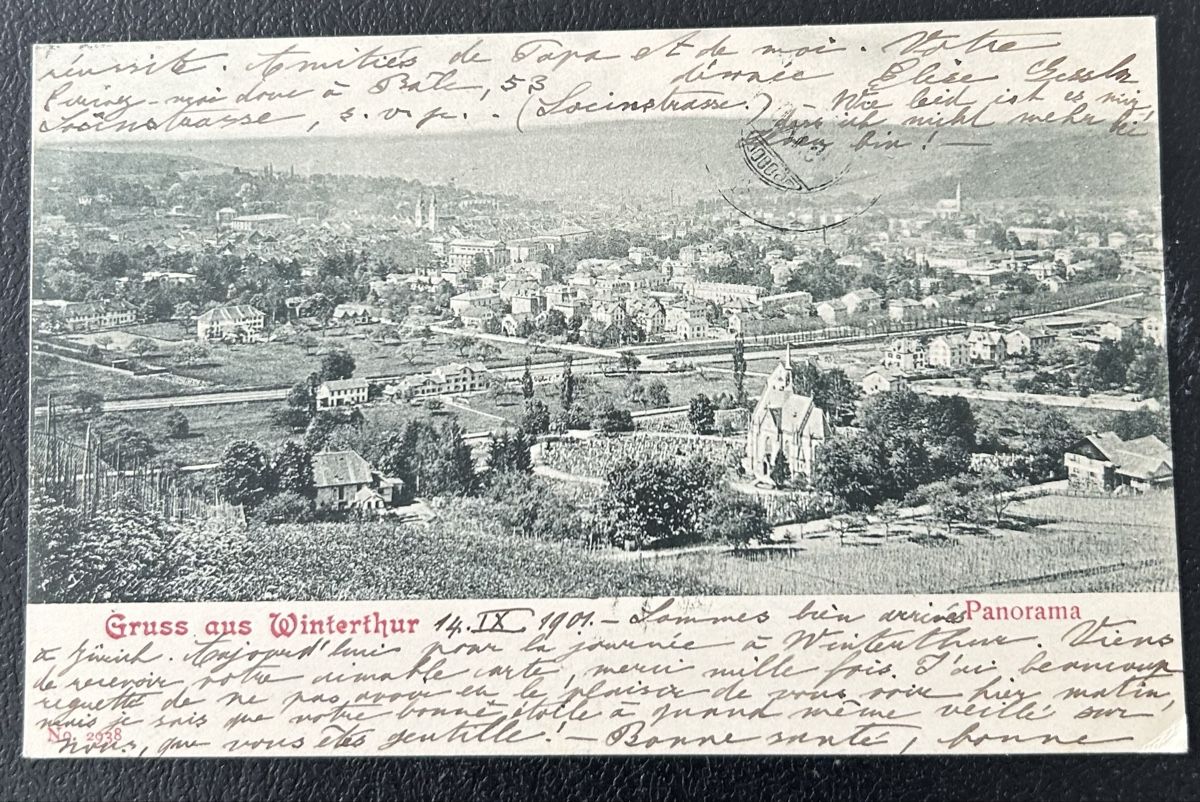 réussite. Amitiés de Papa et de moi. Votre
dévouée Elise Gessler
Ecrivez-moi donc à Bâle, 53
Socinstrasse, s.v.p. (Socinstrasse.) – Wie leid ist es mir,
dass ich nicht mehr bei
Ihnen bin! –
Gruss aus Winterthur
Panorama
14. IX. 1901. – Sommes bien arrivés
à Zürich. Aujourd'hui pour la journée à Winterthur. Viens
de recevoir votre aimable carte, merci mille fois. J'ai beaucoup
regretté de ne pas avoir eu le plaisir de vous voir hier matin,
mais je sais que votre bonne étoile a quand même veillé sur
nous, que vous êtes gentille! – Bonne santé, bonne
No. 2938